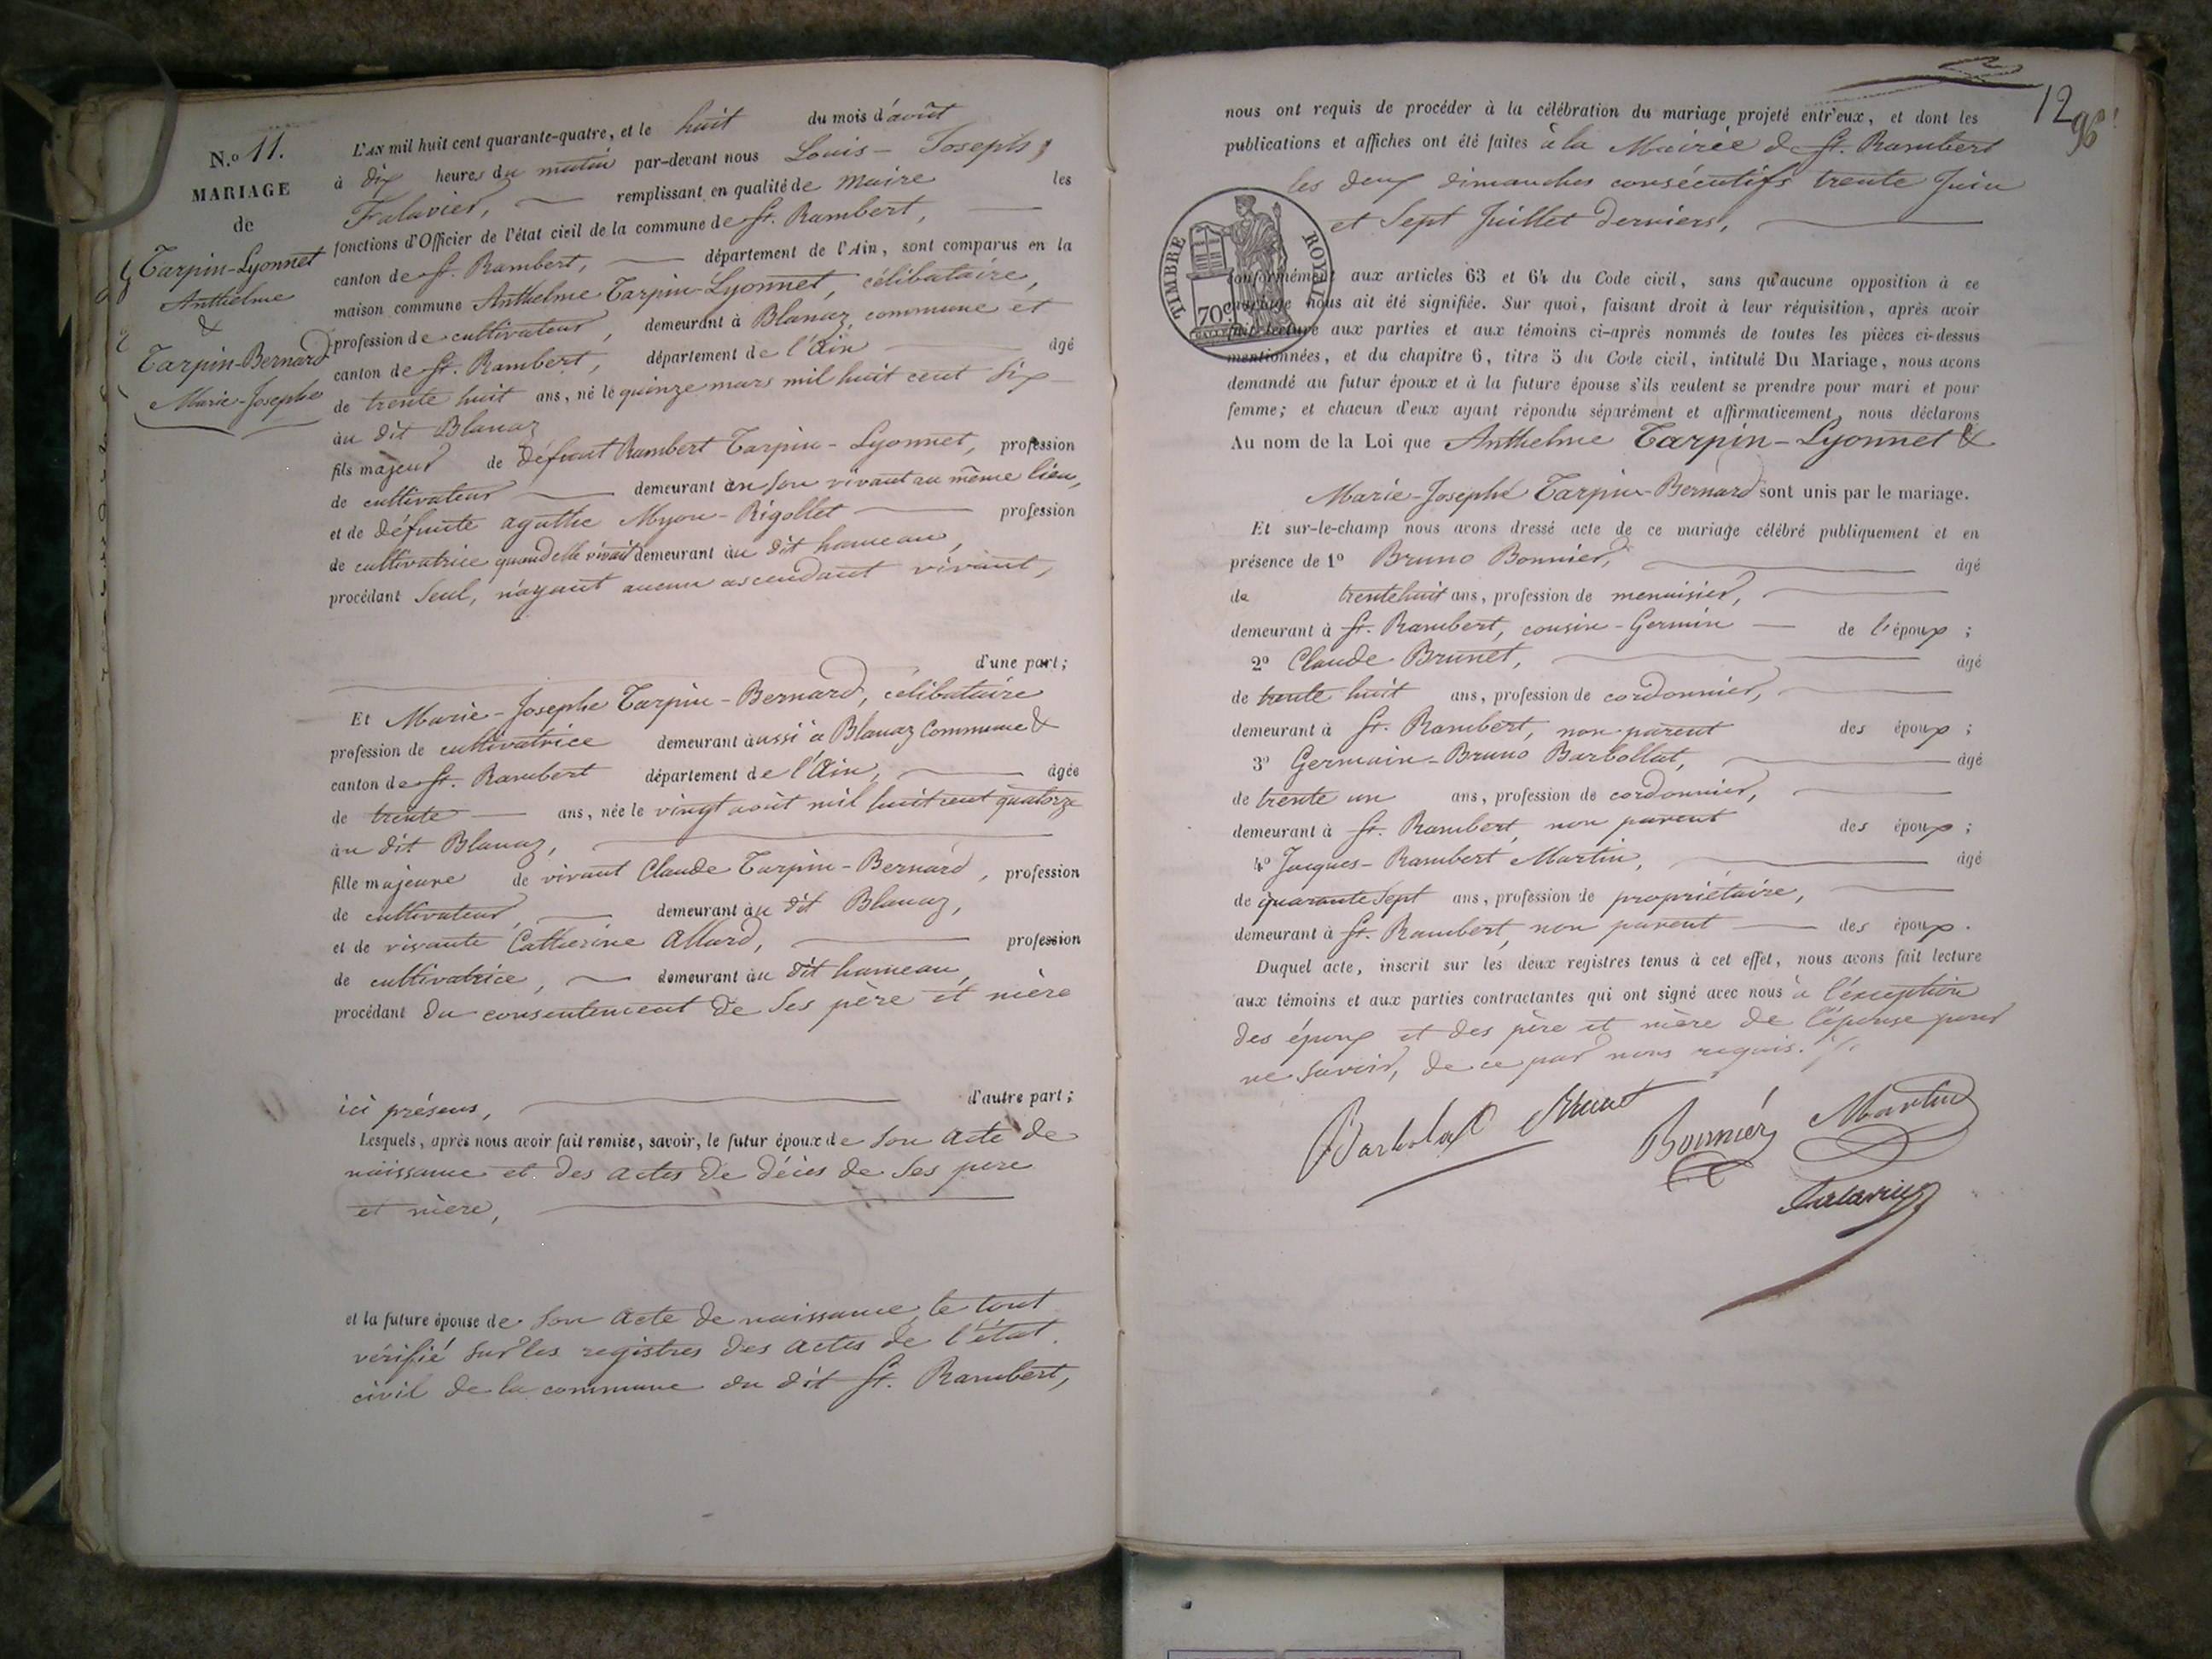 N.º 11.
MARIAGE
de
Tarpin-Lyonnet
Anthelme
&
Tarpin-Bernard
Marie-Josephe
L'AN mil huit cent quarante-quatre, et le huit du mois d'août
à dix heures du matin par-devant nous Louis-Joseph
Falavier, remplissant en qualité de maire les
fonctions d'Officier de l'état civil de la commune de St. Rambert,
canton de St. Rambert, département de l'Ain, sont comparus en la
maison commune Anthelme Tarpin-Lyonnet, célibataire,
profession de cultivateur, demeurant à Blanaz, commune et
canton de St. Rambert, département de l'Ain âgé
de trente huit ans, né le quinze mars mil huit cent six
au dit Blanaz
fils majeur de défunt Rambert Tarpin-Lyonnet, profession
de cultivateur demeurant en son vivant au même lieu,
et de défunte agathe Myon-Rigollet profession
de cultivatrice quand elle vivait demeurant au dit hameau,
procédant seul, n'ayant aucun ascendant vivant,
d'une part;
Et Marie-Josephe Tarpin-Bernard, célibataire
profession de cultivatrice demeurant aussi à Blanaz Commune &
canton de St. Rambert département de l'Ain, âgée
de trente ans, née le vingt août mil huit cent quatorze
au dit Blanaz,
fille majeure de vivant Claude Tarpin-Bernard, profession
de cultivateur, demeurant au dit Blanaz,
et de vivante Catherine Allard, profession
de cultivatrice, demeurant au dit hameau,
procédant du consentement de ses père et mère
ici présens, d'autre part;
Lesquels, après nous avoir fait remise, savoir, le futur époux de son acte de
naissance et des actes de décès de ses père
et mère,
et la future épouse de son acte de naissance, le tout
vérifié sur les registres des actes de l'état
civil de la commune du dit St. Rambert,
12
96
nous ont requis de procéder à la célébration du mariage projeté entr'eux, et dont les
publications et affiches ont été faites à la Mairie de St. Rambert
les deux dimanches consécutifs trente Juin
et sept Juillet derniers,
TIMBRE ROYAL
70c
conformément aux articles 63 et 64 du Code civil, sans qu'aucune opposition à ce
mariage nous ait été signifiée. Sur quoi, faisant droit à leur réquisition, après avoir
fait lecture aux parties et aux témoins ci-après nommés de toutes les pièces ci-dessus
mentionnées, et du chapitre 6, titre 5 du Code civil, intitulé Du Mariage, nous avons
demandé au futur époux et à la future épouse s'ils veulent se prendre pour mari et pour
femme; et chacun d'eux ayant répondu séparément et affirmativement, nous déclarons
Au nom de la Loi que Anthelme Tarpin-Lyonnet &
Marie-Josephe Tarpin-Bernard sont unis par le mariage.
Et sur-le-champ nous avons dressé acte de ce mariage célébré publiquement et en
présence de 1º Bruno Bonnier, âgé
de trente huit ans, profession de menuisier,
demeurant à St. Rambert, cousin-Germin de l'époux;
2º Claude Brunet, âgé
de trente huit ans, profession de cordonnier,
demeurant à St. Rambert, non parent des époux;
3º Germain-Bruno Barbollat, âgé
de trente un ans, profession de cordonnier,
demeurant à St. Rambert, non parent des époux;
4º Jacques-Rambert Martin, âgé
de quarante sept ans, profession de propriétaire,
demeurant à St. Rambert, non parent des époux.
Duquel acte, inscrit sur les deux registres tenus à cet effet, nous avons fait lecture
aux témoins et aux parties contractantes qui ont signé avec nous à l'exception
des époux et des père et mère de l'épouse pour
ne savoir, de ce par nous requis.
Barbolat Brunet
Bonnier Martin
Falavier